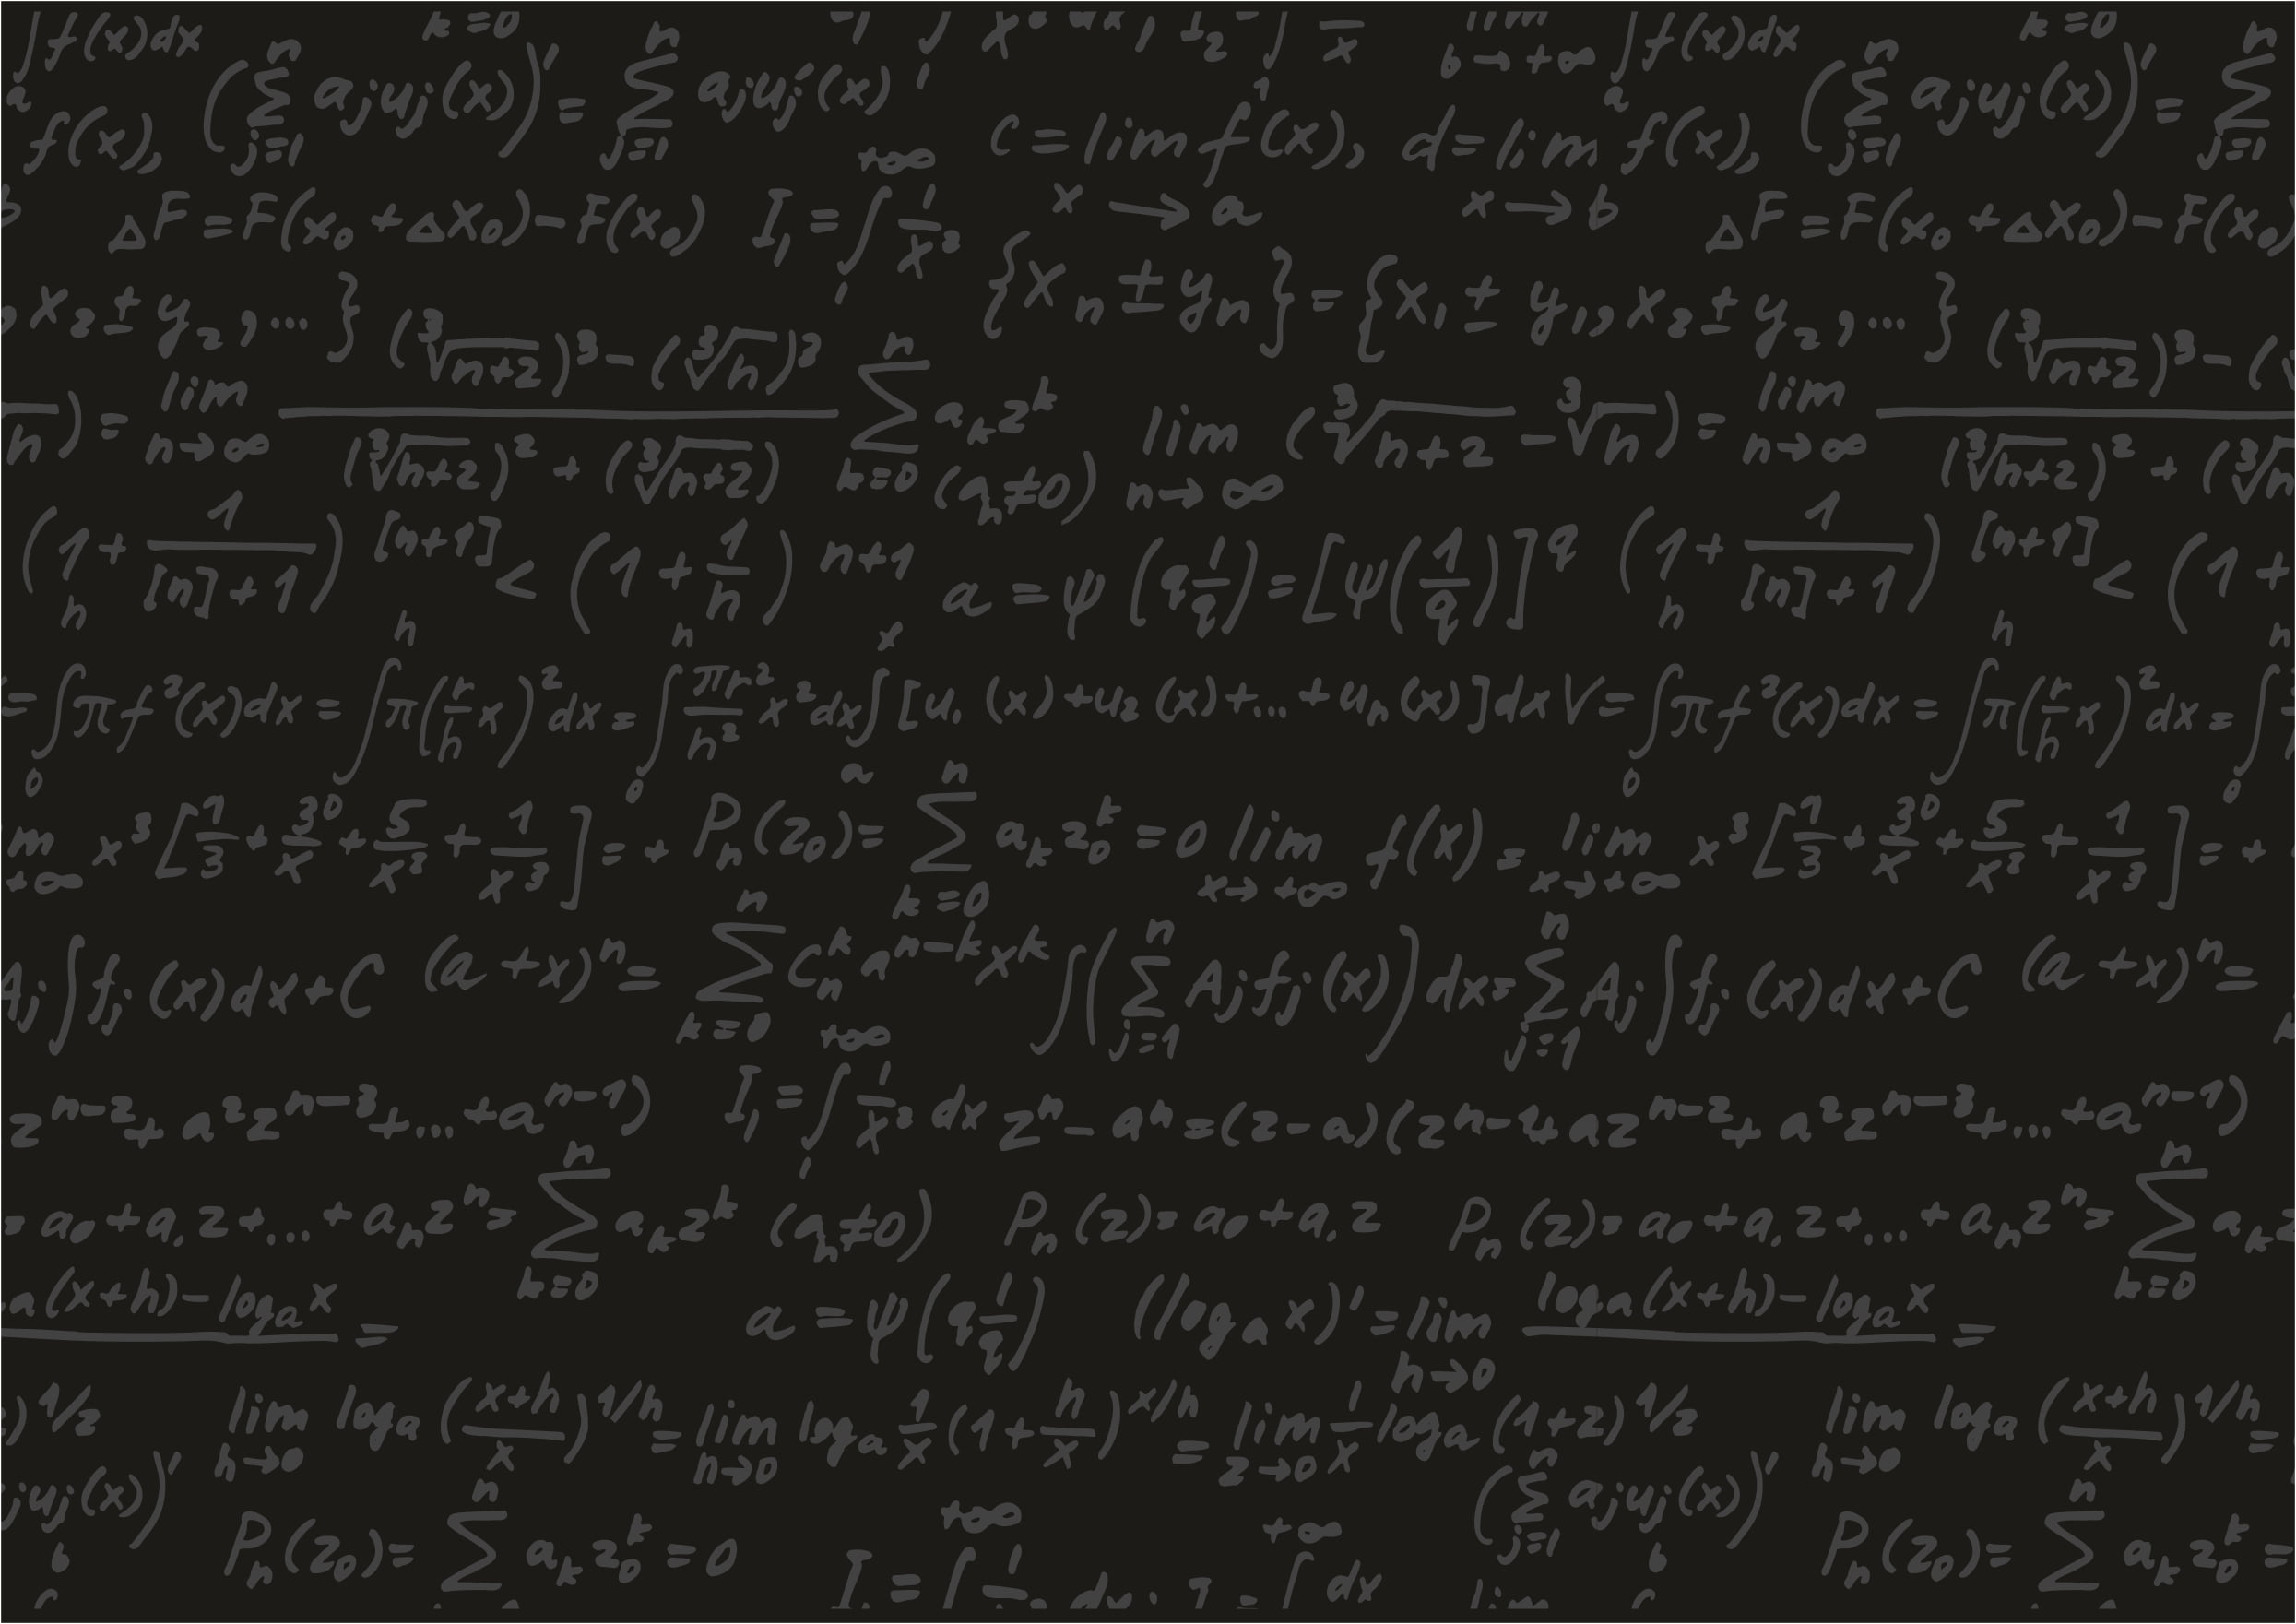 ∫f(x)dx k=0 b→+∞ ∫f(x)dx k=0
f(x), (∑ⁿⱼ₌₁ aⱼuⱼ(x))' = ∑ⁿⱼ₌₁ aⱼuⱼ'(x) c = lim f(x), d = lim f(x), (∑ⁿⱼ₌₁ aⱼuⱼ(x))' = ∑ⁿⱼ₌₁
x→a x→b
ΔF=F(x₀+Δx₀)-F(x₀) I₁=∫₁^(+∞) 1/x³ ΔF=F(x₀+Δx₀)-F(x₀
x₂±y₂,...} {xₙ±yₙ}={x₁±y₁,x₂±y₂,...}
n) = lim n→∞ (∛n+2)³-(∛n)³ / (∛n+2)²+(∛n+2) ∑ⁿₖ₌₀ aₖzᵏ (aₙ≠0) lim n→∞ (∛n+2 - ∛n) = lim n→∞ (∛n+2)³-( / (∛n+2)²+(∛n
(1+ 1/[n]+1)^[n+1] < (1+ 1/n)ⁿ⁺¹ a = ψ(q 1/q) = [ψ(1/q)]^q (1+ 1/[n]+1)^[n+1] < (1+
=∫₀ʰ πf²(x)dx = ∫ʰ π(r/h x)²dx = ∫₀ʰ πr²/h² x²dx ∫ₐˣ [u₁(x)+u₂(x)+...+uₙ(x)]dx V=∫₀ʰ πf²(x)dx = ∫ʰ π(r/h x)²dx = ∫₀ʰ
m x³[1/3 + 30/x + 5/x² + 1/x³] = + Pₙ(z₀) = ∑ⁿₖ₌₀ aₖz₀ᵏ = 0 lim x→+∞ f(x) = lim x→+∞ x³[1/3 + 30/x + 5/x² + 1/x³] = +
Aⱼ∫fⱼ(x)dx+C (a+x)ⁿ= ∑ⁿₖ₌₀ Cₙᵏ aⁿ⁻ᵏxᵏ ∫(∑ⁿⱼ₌₁ Aⱼfⱼ(x))dx= ∑ⁿⱼ₌₁ Aⱼ∫fⱼ(x)dx+C (a+x)ⁿ=
zⁿ⁻²+a²zⁿ⁻³+...+aⁿ⁻¹) I₁=∫₁^(+∞) 1/x³ dx zⁿ-aⁿ=(z-a)(zⁿ⁻¹+azⁿ⁻²+a²zⁿ⁻³+...+aⁿ⁻¹)
= a₀+a₁z+...+aₙzⁿ= ∑ⁿₖ₌₀ aₖzᵏ (aₙ≠0) Pₙ(z)=a₀+a₁z Pₙ(z)=a₀+a₁z+...+aₙzⁿ= ∑ⁿₖ₌₀ aₖz
a(x+h)-logₐx = a = ψ(q 1/q) (logₐx)'= lim h→0 logₐ(x+h)-logₐx =
)^1/z lim h→0 logₐ(x+h/x)^1/h = lim h→0 logₐ 1/x (1+ h/x)^x/h = lim z→0 1/x logₐ(1+z)^1/z lim h→0 logₐ(x+h/x)^1/h =
ⱼuⱼ(x))' Pₙ(z₀)= ∑ⁿ aₖz₀ᵏ = 0 (∑ⁿⱼ₌₁ aⱼuⱼ(x))' Pₙ(z₀)= ∑ⁿ aₖz₀ᵏ =